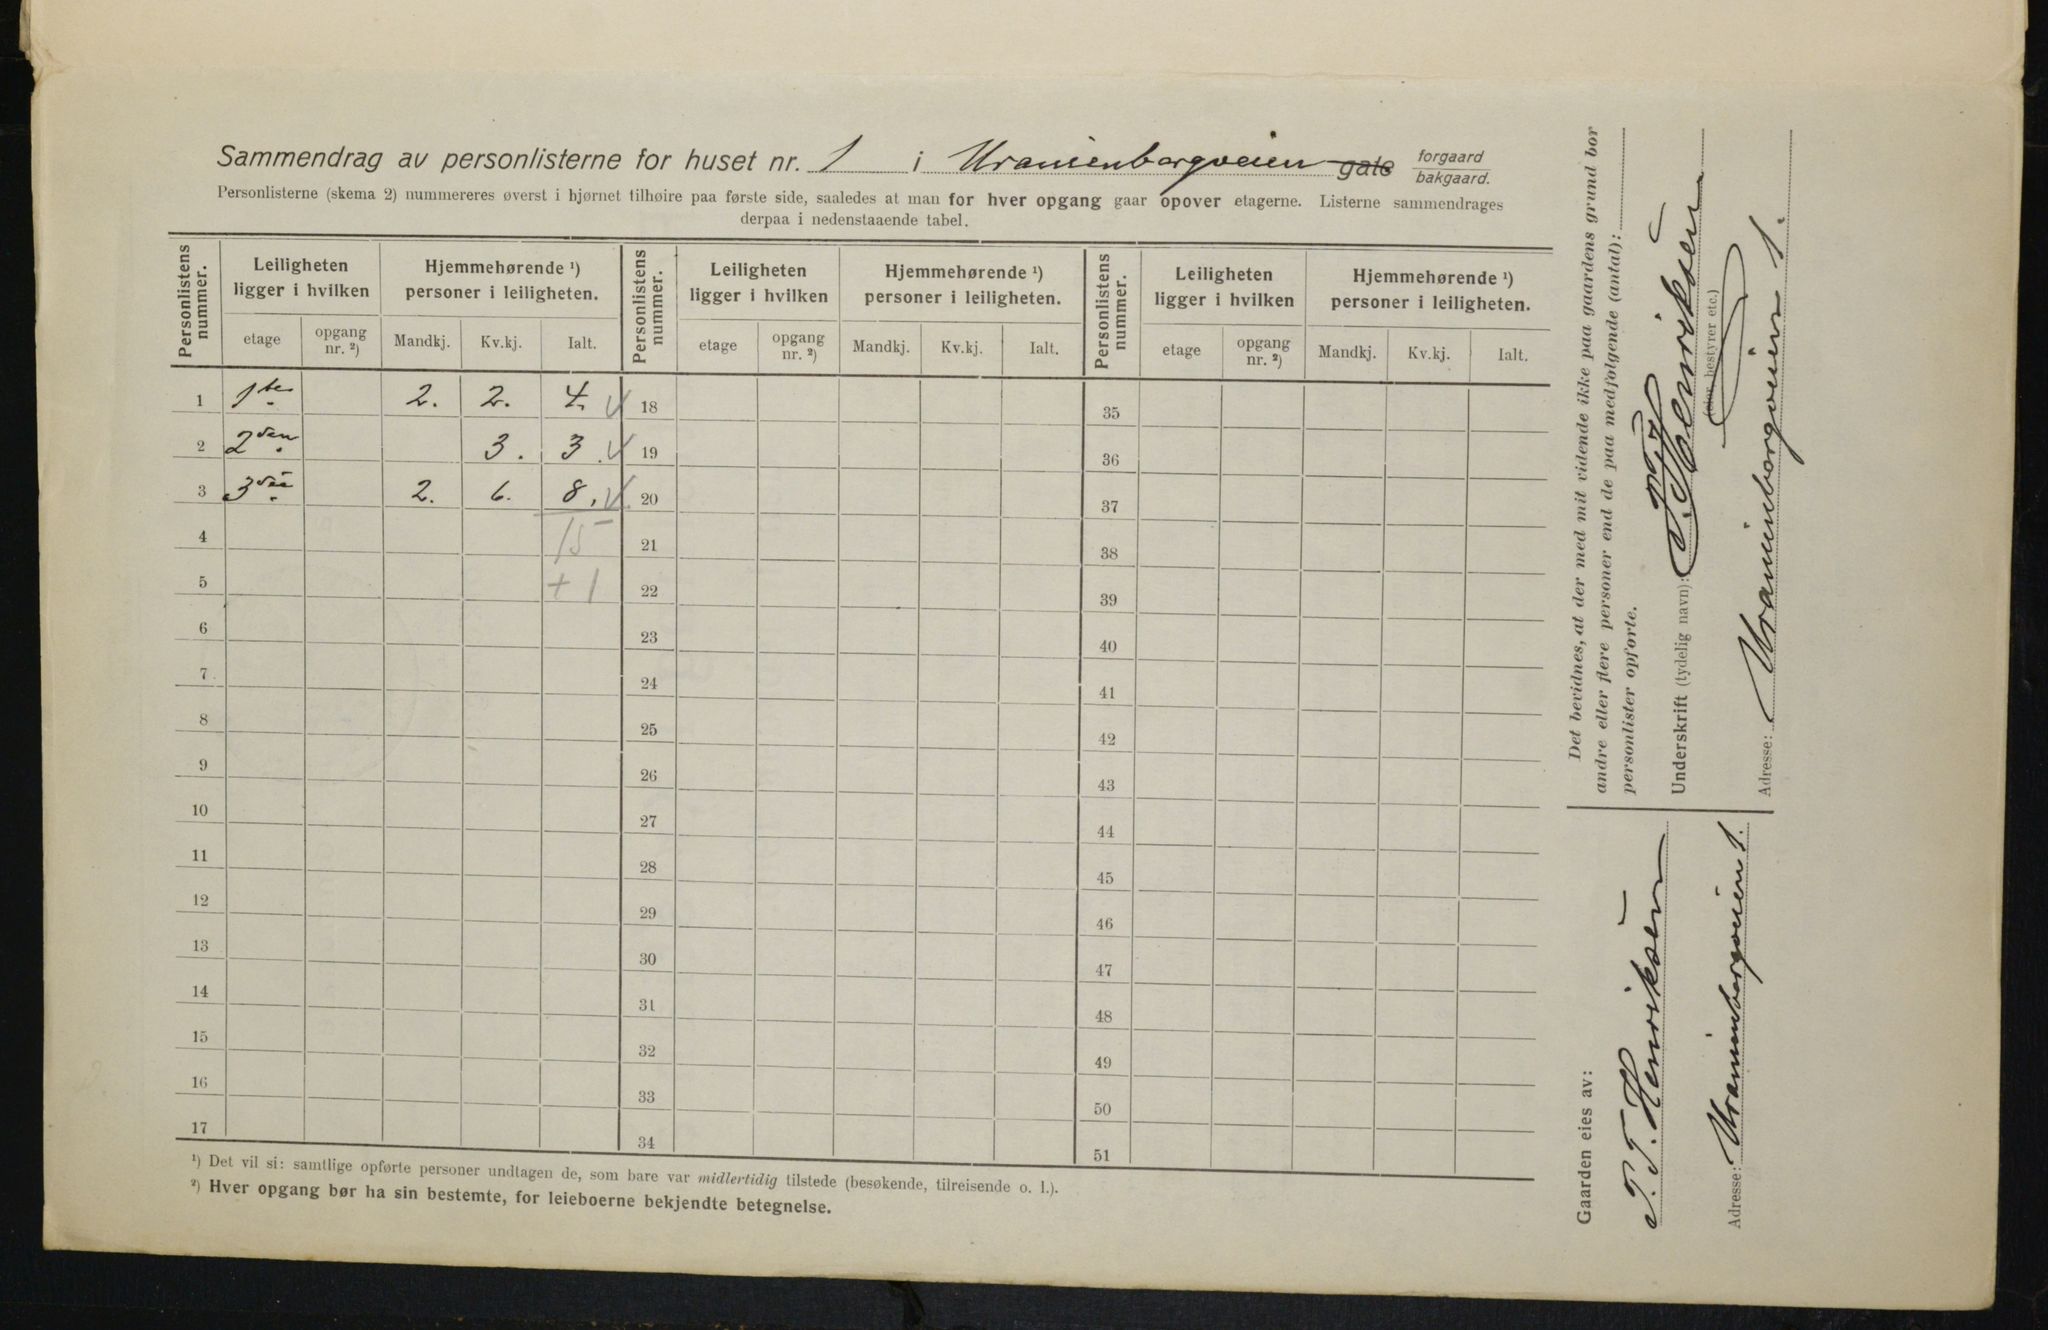 Sammendrag av personlisterne for huset nr. 1 i Uranienborgveien gate forgaard bakgaard.
Personlisterne (skema 2) nummereres øverst i bjørnet tilhøire paa første side, saaledes at man for hver opgang gaar opover etagerne. Listerne sammendrages
derpaa i nedenstaaende tabel.
Personlistens nummer. Leiligheten ligger i hvilken Hjemmehørende ¹) personer i leiligheten. Personlistens nummer. Leiligheten ligger i hvilken Hjemmehørende ¹) personer i leiligheten. Personlistens nummer. Leiligheten ligger i hvilken Hjemmehørende ¹) personer i leiligheten.
etage opgang nr. ²) Mandkj. Kv.kj. Ialt. etage opgang nr. ²) Mandkj. Kv.kj. Ialt. etage opgang nr. ²) Mandkj. Kv.kj. Ialt.
1 1ste 2. 2. 4. 18 35
2 2den 3. 3. 19 36
3 3die 2. 6. 8. 20 37
4 15 21 38
5 +1 22 39
6 23 40
7 24 41
8 25 42
9 26 43
10 27 44
11 28 45
12 29 46
13 30 47
14 31 48
15 32 49
16 33 50
17 34 51
¹) Det vil si: samtlige opførte personer undtagen de, som bare var midlertidig tilstede (besøkende, tilreisende o. l.).
²) Hver opgang bør ha sin bestemte, for leieboerne bekjendte betegnelse.
Det bevidnes, at der med mit vidende ikke paa gaardens grund bor
andre eller flere personer end de paa medfølgende (antal):
personlister opførte.
Underskrift (tydelig navn): T. Henriksen
(eier, bestyrer etc.)
Adresse: Uranienborgveien 1.
Gaarden eies av:
T. T. Henriksen
Adresse: Uranienborgveien 1.